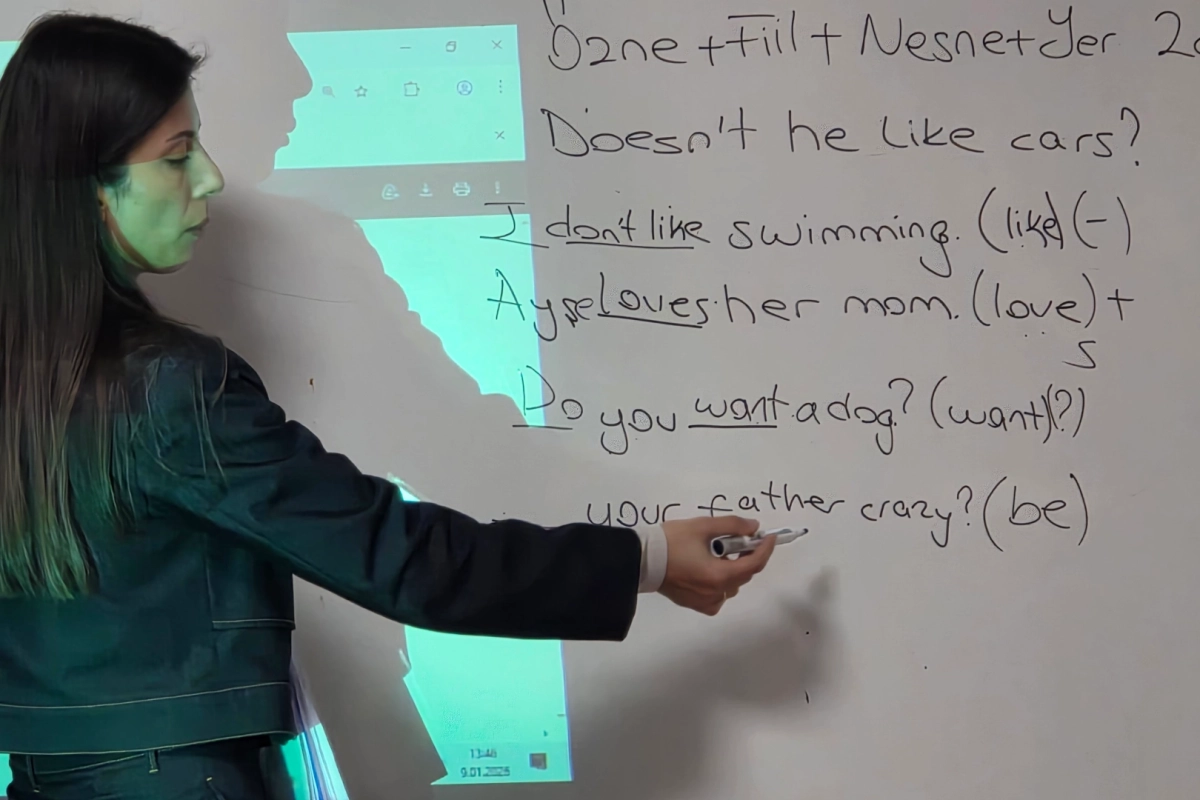 Özne + Fiil + Nesne + Yer
Doesn't he like cars?
I don't like swimming. (like) (-)
Ayşe loves her mom. (love) +
s
Do you want a dog? (want) (?)
your father crazy? (be)
13:46
9.01.2025